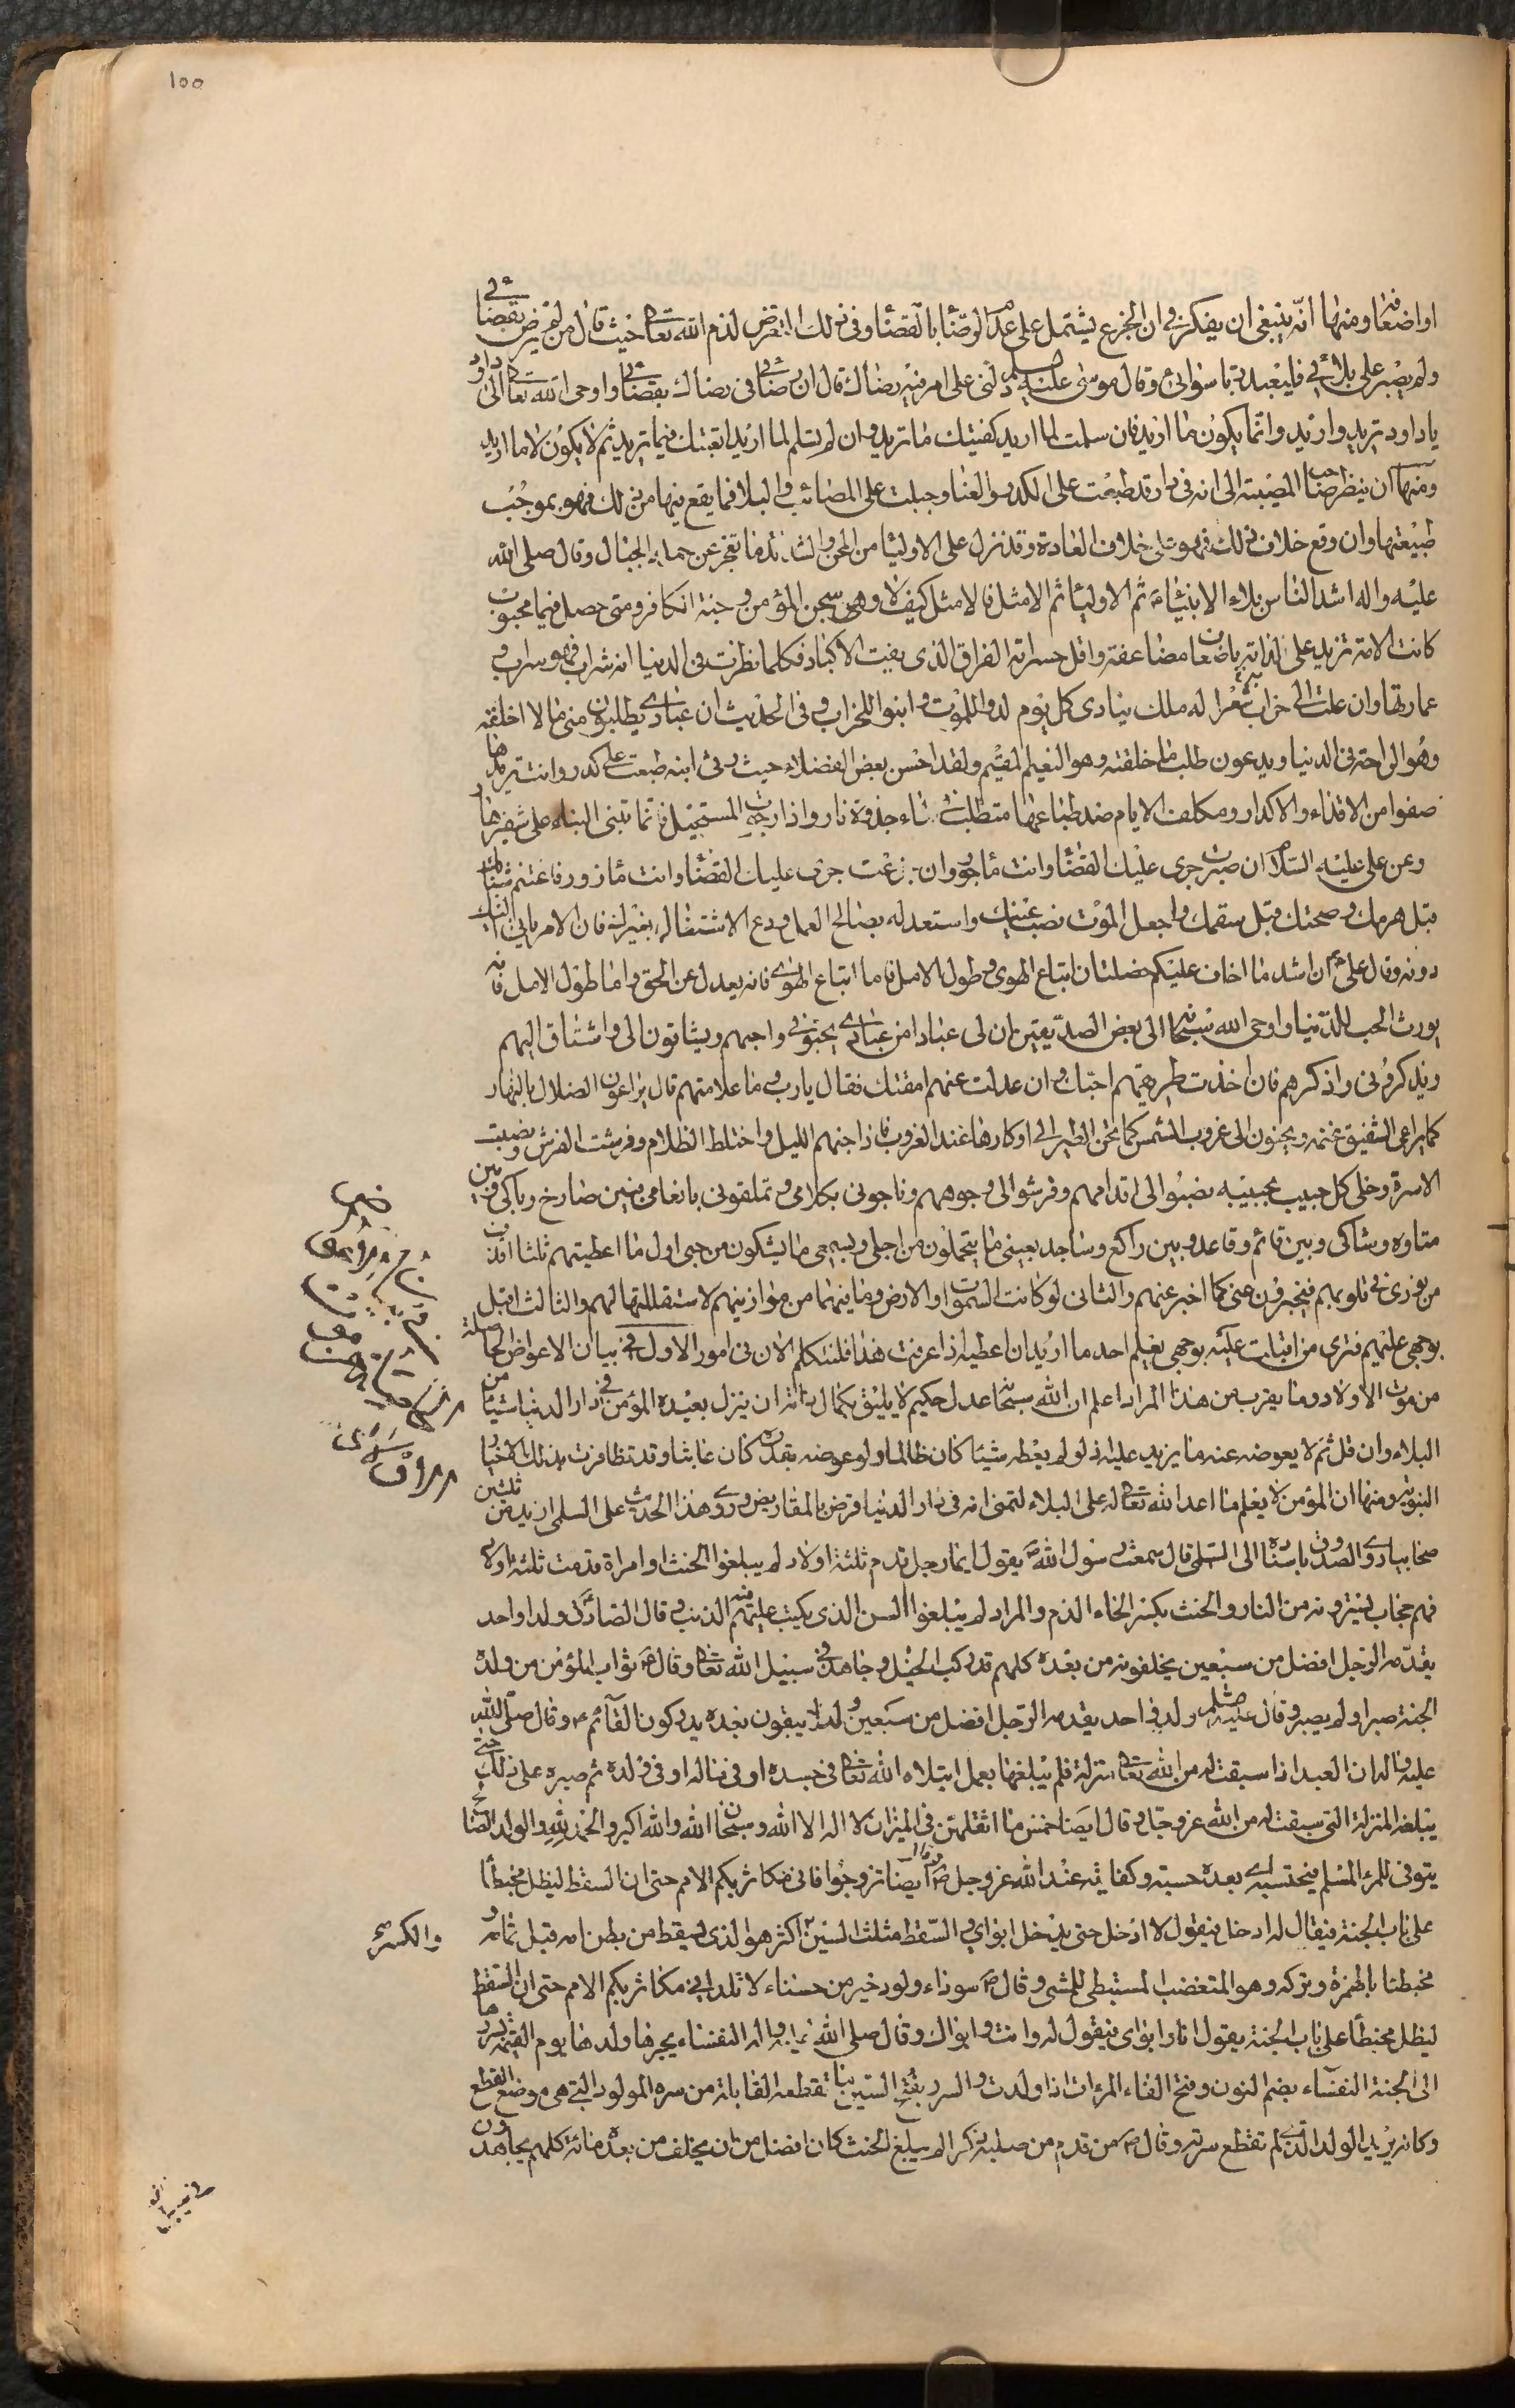 ١٥٥
او اضعافا ومنها انه ينبغي ان يفكر في ان الجزع يشتمل على عدم الرضا بالقضا وفي ذلك التعرض لذم الله تعالى حيث قال من لم يرض بقضائي
ولم يصبر على بلائي فليعبد ربا سوائي وقال موسى عليه السلم دلني على امر فيه رضاك قال ان رضائي في رضاك بقضائي واوحى الله تعالى الى داود
يا داود تريد واريد وانما يكون ما اريد فان سلمت لما اريد كفيتك ما تريد وان لم تسلم لما اريد اتعبتك فيما تريد ثم لا يكون الا ما اريد
ومنها ان ينظر صاحب المصيبة الى انه في دار قد طبعت على الكدر والعنا وجبلت على المصائب والبلا فما يقع فيها من ذلك فهو بموجب
طبيعتها وان وقع خلاف ذلك فهو على خلاف العادة وقد نزل على الاوليا من المحن والشدائد ما تعجز عن حمله الجبال وقال صلى الله
عليه واله اشد الناس بلاء الانبياء ثم الاوليا ثم الامثل فالامثل كيف لا وهي سجن المؤمن وجنة الكافر ومتى حصل فيها محبوب
كانت الامه تزيد على لذاته باضعاف مضاعفة واقل حسراته الفراق الذي يفيت الاكباد فكلما نظرت في الدنيا انه شراب فهو سراب و
عمارتها وان علت الى خراب شعر له ملك ينادي كل يوم لدوا للموت وابنوا للخراب وفي الحديث ان عبادي يطلبون مني ما لا اخلقه
وهو الراحة في الدنيا ويدعون طلب ما خلقته وهو النعيم المقيم ولقد احسن بعض الفضلاء حيث رثى ابنه طبعت على كدر وانت تريدها
صفوا من الاقذاء والاكدار ومكلف الايام ضد طباعها متطلب في الماء جذوة نار واذا رجوت المستحيل فانما تبني البناء على شفير هار
وعن علي عليه السلام ان صبرت جرى عليك القضا وانت مأجور وان جزعت جرى عليك القضا وانت مأزور فاغتنم شبابك
قبل هرمك وصحتك قبل سقمك واجعل الموت نصب عينيك واستعد له بصالح العمل ودع الاشتغال بغيرك فان الامر يأتي اليك
دونه وقال علي ان اشد ما اخاف عليكم خصلتان اتباع الهوى وطول الامل فاما اتباع الهوى فانه يعدل عن الحق واما طول الامل فانه
يورث الحب للدنيا واوحى الله سبحانه الى بعض الصديقين ان لي عبادا من عبادي يحبوني واحبهم ويشتاقون الي واشتاق اليهم
ويذكروني واذكرهم فان اخذت طريقتهم احببتك وان عدلت عنهم امقتك فقال يا رب وما علامتهم قال يراعون الضلال بالنهار
كما يراعي الشفيق غنمه ويحنون الى غروب الشمس كما تحن الطير الى اوكارها عند الغروب فاذا جنهم الليل واختلط الظلام وفرشت الفرش ونصبت
الاسرة وخلى كل حبيب بحبيبه نصبوا الي اقدامهم وفرشوا الي وجوههم وناجوني بكلامي وتملقوني بانعامي فبين صارخ وباكي وبين
متاوه وشاكي وبين قائم وقاعد وبين راكع وساجد بعيني ما يتحملون من اجلي وبسمعي ما يشكون من حبي اول ما اعطيتهم ثلثا اقذف
من نوري في قلوبهم فيخبرون عني كما اخبر عنهم والثاني لو كانت السموات والارض وما بينهما من موازينهم لاستقللتها لهم والثالث اقبل
بوجهي عليهم فترى من اقبلت عليه بوجهي يعلم احد ما اريد ان اعطيه اذا عرفت هذا فلنتكلم الان في امور الاول في بيان الاعواض الحاصلة
من موت الاولاد وما يقرب من هذا المراد اعلم ان الله سبحانه عدل حكيم لا يليق بكمال ذاته ان ينزل بعبده المؤمن في دار الدنيا شيئا من
البلاء وان قل ثم لا يعوضه عنه ما يزيد عليه اذ لو لم يعطه شيئا كان ظالما ولو عوضه بقدره كان عابثا وقد تظافرت بذلك الاخبار
النبوية ومنها ان المؤمن لا يعلم ما اعد الله تعالى له على البلاء لتمنى انه في دار الدنيا قرض بالمقاريض وروى هذا الحديث على السلمي ازيد من ثلثين
صحابيا وروى الصدوق باسناده الى السلمي قال سمعت رسول الله ص يقول ايما رجل قدم ثلثة اولاد لم يبلغوا الحنث او امراة قدمت ثلثة اولاد
فهم حجاب يسترونه من النار والحنث بكسر الحاء الذم والمراد لم يبلغوا السن الذي يكتب عليهم فيه الذنب وقال الصادق ولد واحد
يقدمه الرجل افضل من سبعين يخلفونه من بعده كلهم قد ركب الخيل وجاهد في سبيل الله تعالى وقال ثواب المؤمن من ولده
الجنة صبر او لم يصبر وقال عليه السلم ولد واحد يقدمه الرجل افضل من سبعين ولدا يبقون بعده يدركون القائم وقال صلى الله
عليه واله ان العبد اذا سبقت له من الله تعالى منزلة فلم يبلغها بعمل ابتلاه الله تعالى في جسده او في ماله او في ولده ثم صبره على ذلك حتى
يبلغه المنزلة التي سبقت له من الله عز وجل وقال ايضا خمس ما اثقلهن في الميزان لا اله الا الله وسبحان الله والله اكبر والحمد لله والولد الصالح
يتوفى للمرء المسلم فيحتسبه اي بعده حسبه وكفايته عند الله عز وجل وقال ايضا تزوجوا فاني مكاثر بكم الامم حتى ان السقط ليظل محبنطأ
على باب الجنة فيقال له ادخل فيقول لا ادخل حتى يدخل ابواي والسقط مثلث السين والكسر اكثر هو الذي يسقط من بطن امه قبل تمامه و
محبنطا بالهمزة وتركه وهو المتغضب المستبطي للمشي وقال ص سوداء ولود خير من حسناء لا تلد اني مكاثر بكم الامم حتى ان السقط
ليظل محبنطأ على باب الجنة يقول انا وابواي فيقول له وانت وابواك وقال صلى الله عليه واله النفساء يجرها ولدها يوم القيمة بسررها
الى الجنة النفساء بضم النون وفتح الفاء المراة اذا ولدت والسرر بفتح السين ما تقطعه القابلة من سرة المولود التي هي موضع القطع
وكانه يريد الولد الذي لم تقطع سرته وقال ص من قدم من صلبه ذكرا لم يبلغ الحنث كان افضل من ان يخلف من بعده مائة كلهم يجاهدون